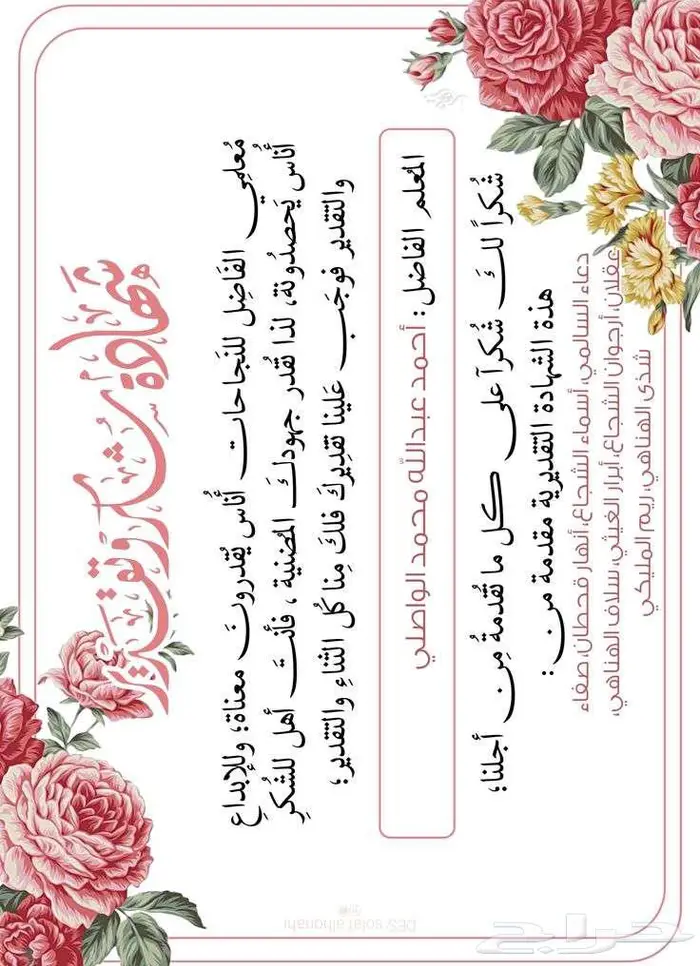 شهادة شكر وتقدير
مُعلمِي الفَاضِل للنَجَاحات أُناس يُقدرونَ معناة؛ وللإبداعِ
أُناس يَحصدُونة، لذا نُقدر جهودكَ المُضنية ، فأنتَ أهل للشُكرِ
والتقدير فوجب علينا تقديركَ فلكَ مِنا كُل الثناءِ والتقدير؛
المُعلم الفاضل : أحمد عبدالله محمد الواصلي
شُكراً لكَ شُكراً على كل ما تُقدمةُ مِن أجلنا؛
هذة الشهادة التقديرية مقدمة من :
دعاء السالمي، أسماء الشجاع، أنهار قحطان، صفاء
عقلان، أرجوان الشجاع، أبرار الغيثي، سلاف الهناهي،
شذى الهناهي، ريم المليكي
DES: solaf alhonahi
حراج